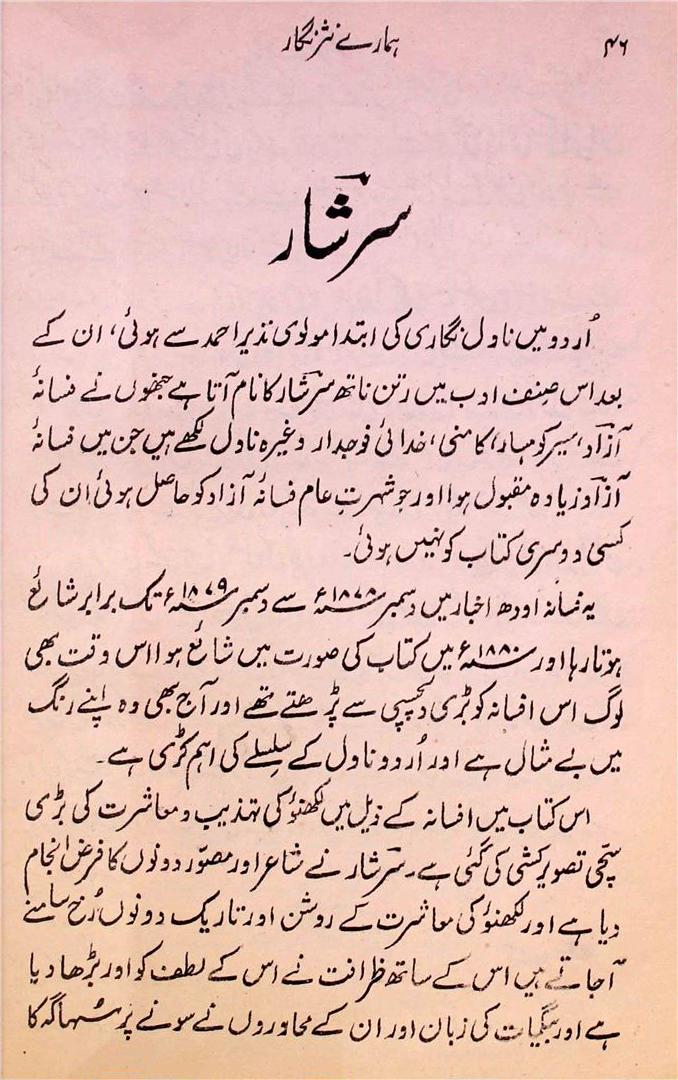 ۴۶
ہمارے نثر نگار
سرشار
اُردو میں ناول نگاری کی ابتدا مولوی نذیر احمد سے ہوئی، ان کے
بعد اس صنف ادب میں رتن ناتھ سرشار کا نام آتا ہے جنھوں نے فسانۂ
آزاد، سیر کوہسار، کامنی، خدائی فوجدار وغیرہ ناول لکھے ہیں جن میں فسانۂ
آزاد زیادہ مقبول ہوا اور جو شہرتِ عام فسانۂ آزاد کو حاصل ہوئی ان کی
کسی دوسری کتاب کو نہیں ہوئی۔
یہ فسانہ اودھ اخبار میں دسمبر ۱۸۷۸ء سے دسمبر ۱۸۷۹ء تک برابر شائع
ہوتا رہا اور ۱۸۸۰ء میں کتاب کی صورت میں شائع ہوا اس وقت بھی
لوگ اس افسانہ کو بڑی دلچسپی سے پڑھتے تھے اور آج بھی وہ اپنے رنگ
میں بے مثال ہے اور اُردو ناول کے سلسلے کی اہم کڑی ہے۔
اس کتاب میں افسانہ کے ذیل میں لکھنؤ کی تہذیب و معاشرت کی بڑی
سچّی تصویر کشی کی گئی ہے۔ سرشار نے شاعر اور مصوّر دونوں کا فرض انجام
دیا ہے اور لکھنؤ کی معاشرت کے روشن اور تاریک دونوں رُخ سامنے
آجاتے ہیں اس کے ساتھ ظرافت نے اس کے لطف کو اور بڑھا دیا
ہے اور بیگمات کی زبان اور ان کے محاوروں نے سونے پر سُہاگہ کا